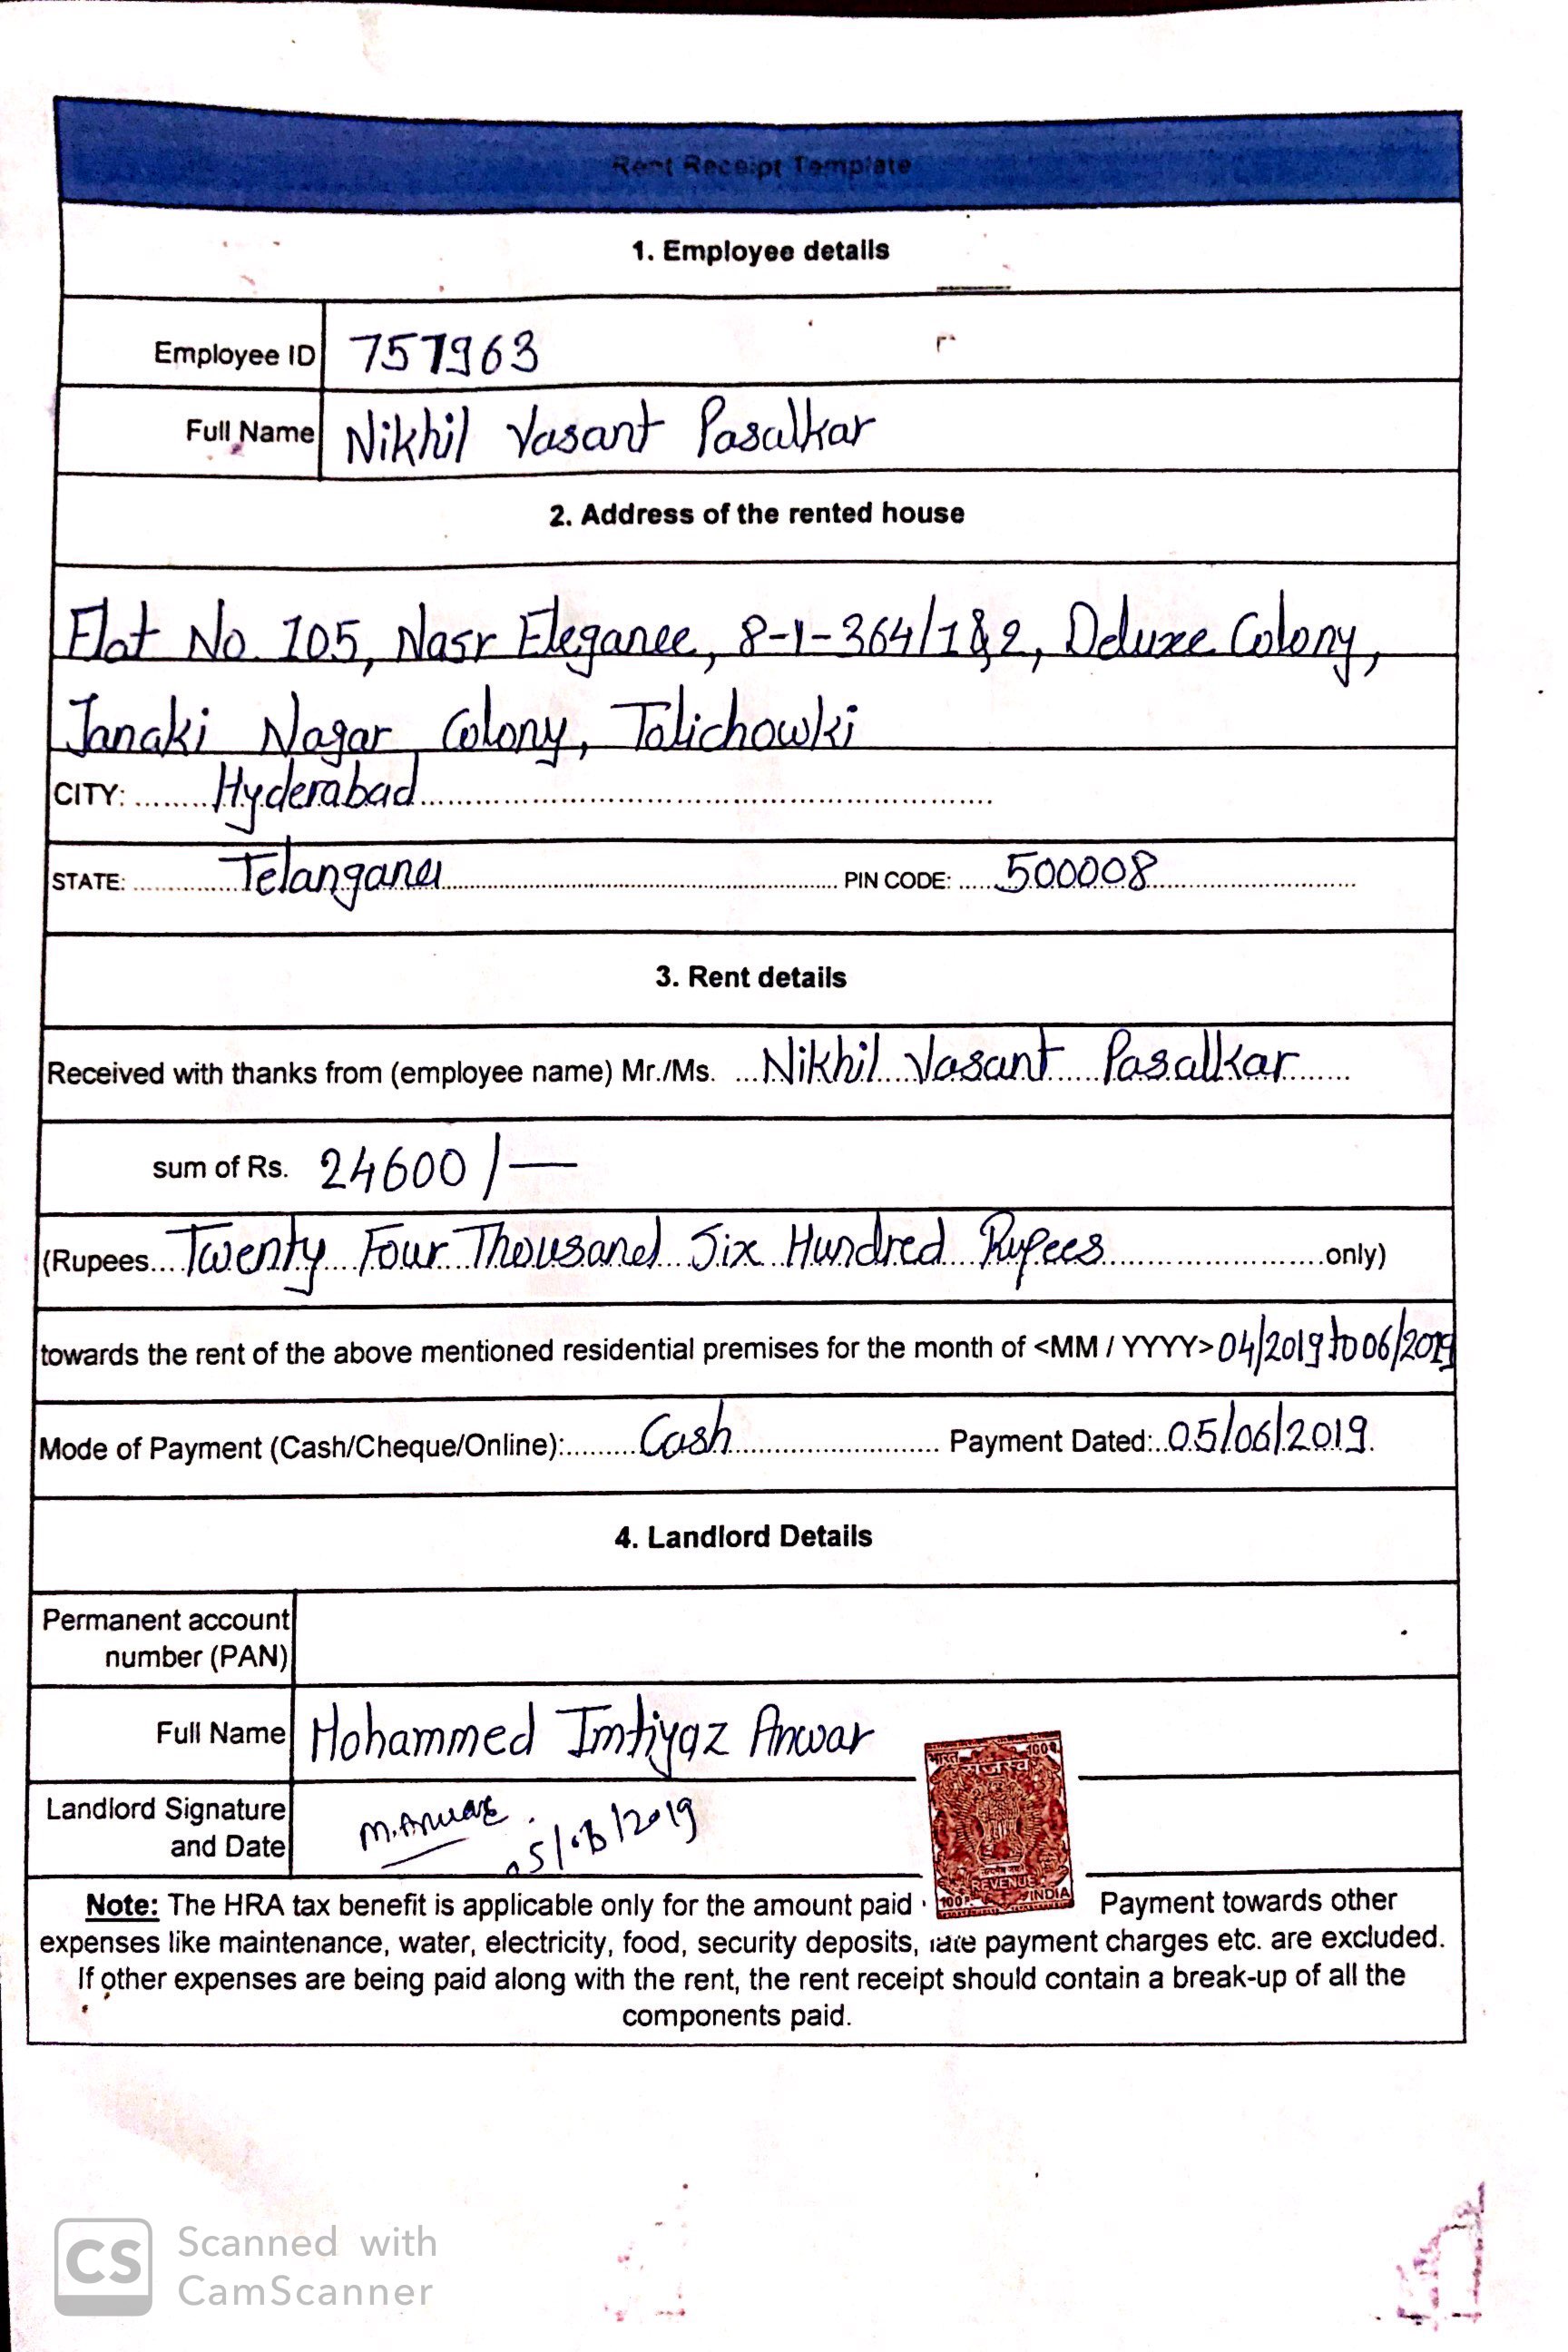 Rent Receipt Template
1. Employee details
Employee ID 757963
Full Name Nikhil Vasant Pasalkar
2. Address of the rented house
Flat No. 105, Nasr Elegance, 8-1-364/1&2, Deluxe Colony,
Janaki Nagar Colony, Tolichowki
CITY: ........Hyderabad........
STATE: ........Telangana........ PIN CODE: ......500008........
3. Rent details
Received with thanks from (employee name) Mr./Ms. ...Nikhil Vasant Pasalkar......
sum of Rs. 24600/—
(Rupees....Twenty Four Thousand Six Hundred Rupees........only)
towards the rent of the above mentioned residential premises for the month of <MM / YYYY> 04/2019 to 06/2019
Mode of Payment (Cash/Cheque/Online):........Cash........ Payment Dated:..05/06/2019.
4. Landlord Details
Permanent account
number (PAN)
Full Name Mohammed Imtiyaz Anwar
भारत 100
राजस्व
Landlord Signature
and Date M. Anwar
REVENUE
100 INDIA
Note: The HRA tax benefit is applicable only for the amount paid Payment towards other
expenses like maintenance, water, electricity, food, security deposits, late payment charges etc. are excluded.
If other expenses are being paid along with the rent, the rent receipt should contain a break-up of all the
components paid.
CS Scanned with
CamScanner